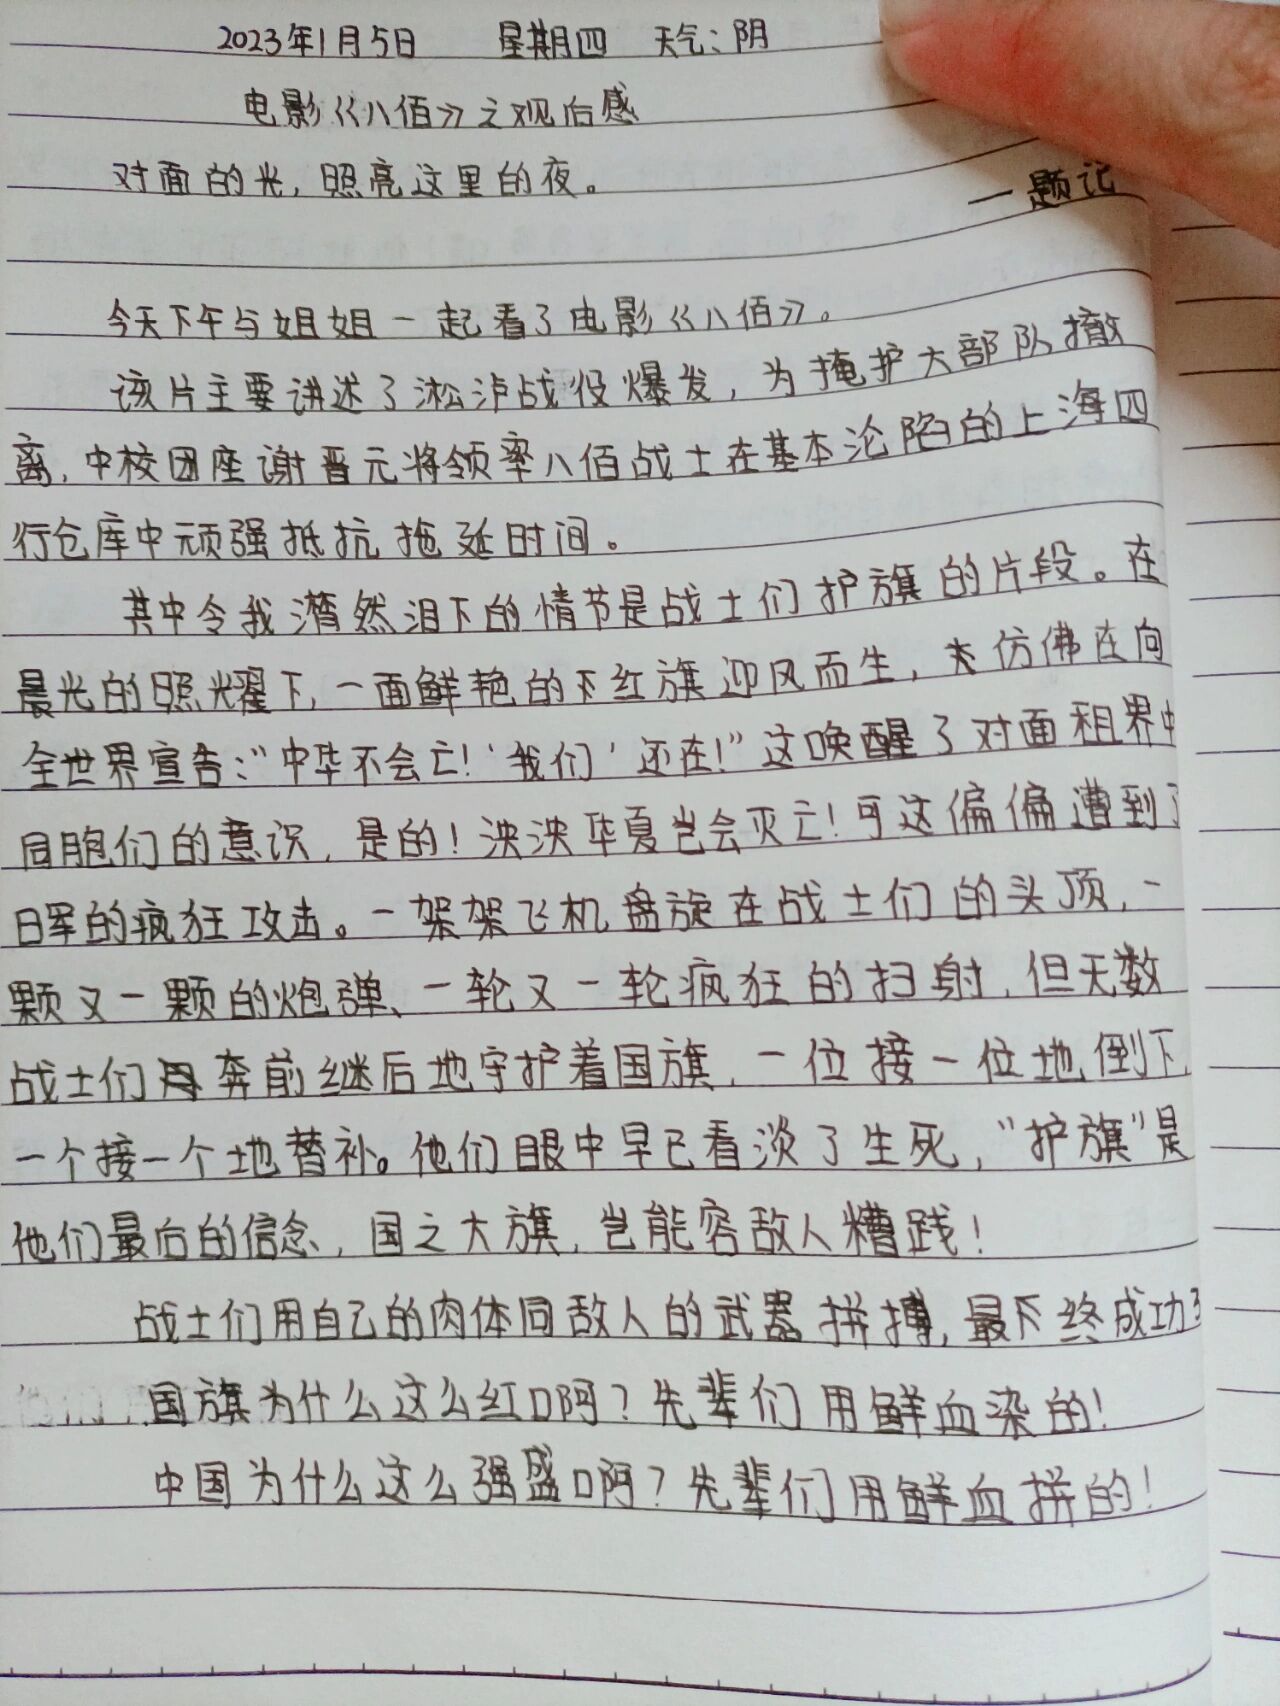 2023年1月5日 星期四 天气:阴
电影《八佰》之观后感
对面的光,照亮这里的夜。
一题记
今天下午与姐姐一起看了电影《八佰》。
该片主要讲述了淞沪战役爆发,为掩护大部队撤
离,中校团座谢晋元将领率八佰战士在基本沦陷的上海四
行仓库中顽强抵抗拖延时间。
其中令我潸然泪下的情节是战士们护旗的片段。在
晨光的照耀下,一面鲜艳的红旗迎风而生,仿佛在向
全世界宣告:"中华不会亡!'我们'还在!"这唤醒了对面租界中
同胞们的意识,是的!泱泱华夏岂会灭亡!可这偏偏遭到了
日军的疯狂攻击。一架架飞机盘旋在战士们的头顶,一
颗又一颗的炮弹、一轮又一轮疯狂的扫射,但无数
战士们奔前继后地守护着国旗,一位接一位地倒下,
一个接一个地替补。他们眼中早已看淡了生死,"护旗"是
他们最后的信念,国之大旗,岂能容敌人糟践!
战士们用自己的肉体同敌人的武器拼搏,最终成功了
国旗为什么这么红啊?先辈们用鲜血染的!
中国为什么这么强盛啊?先辈们用鲜血拼的!